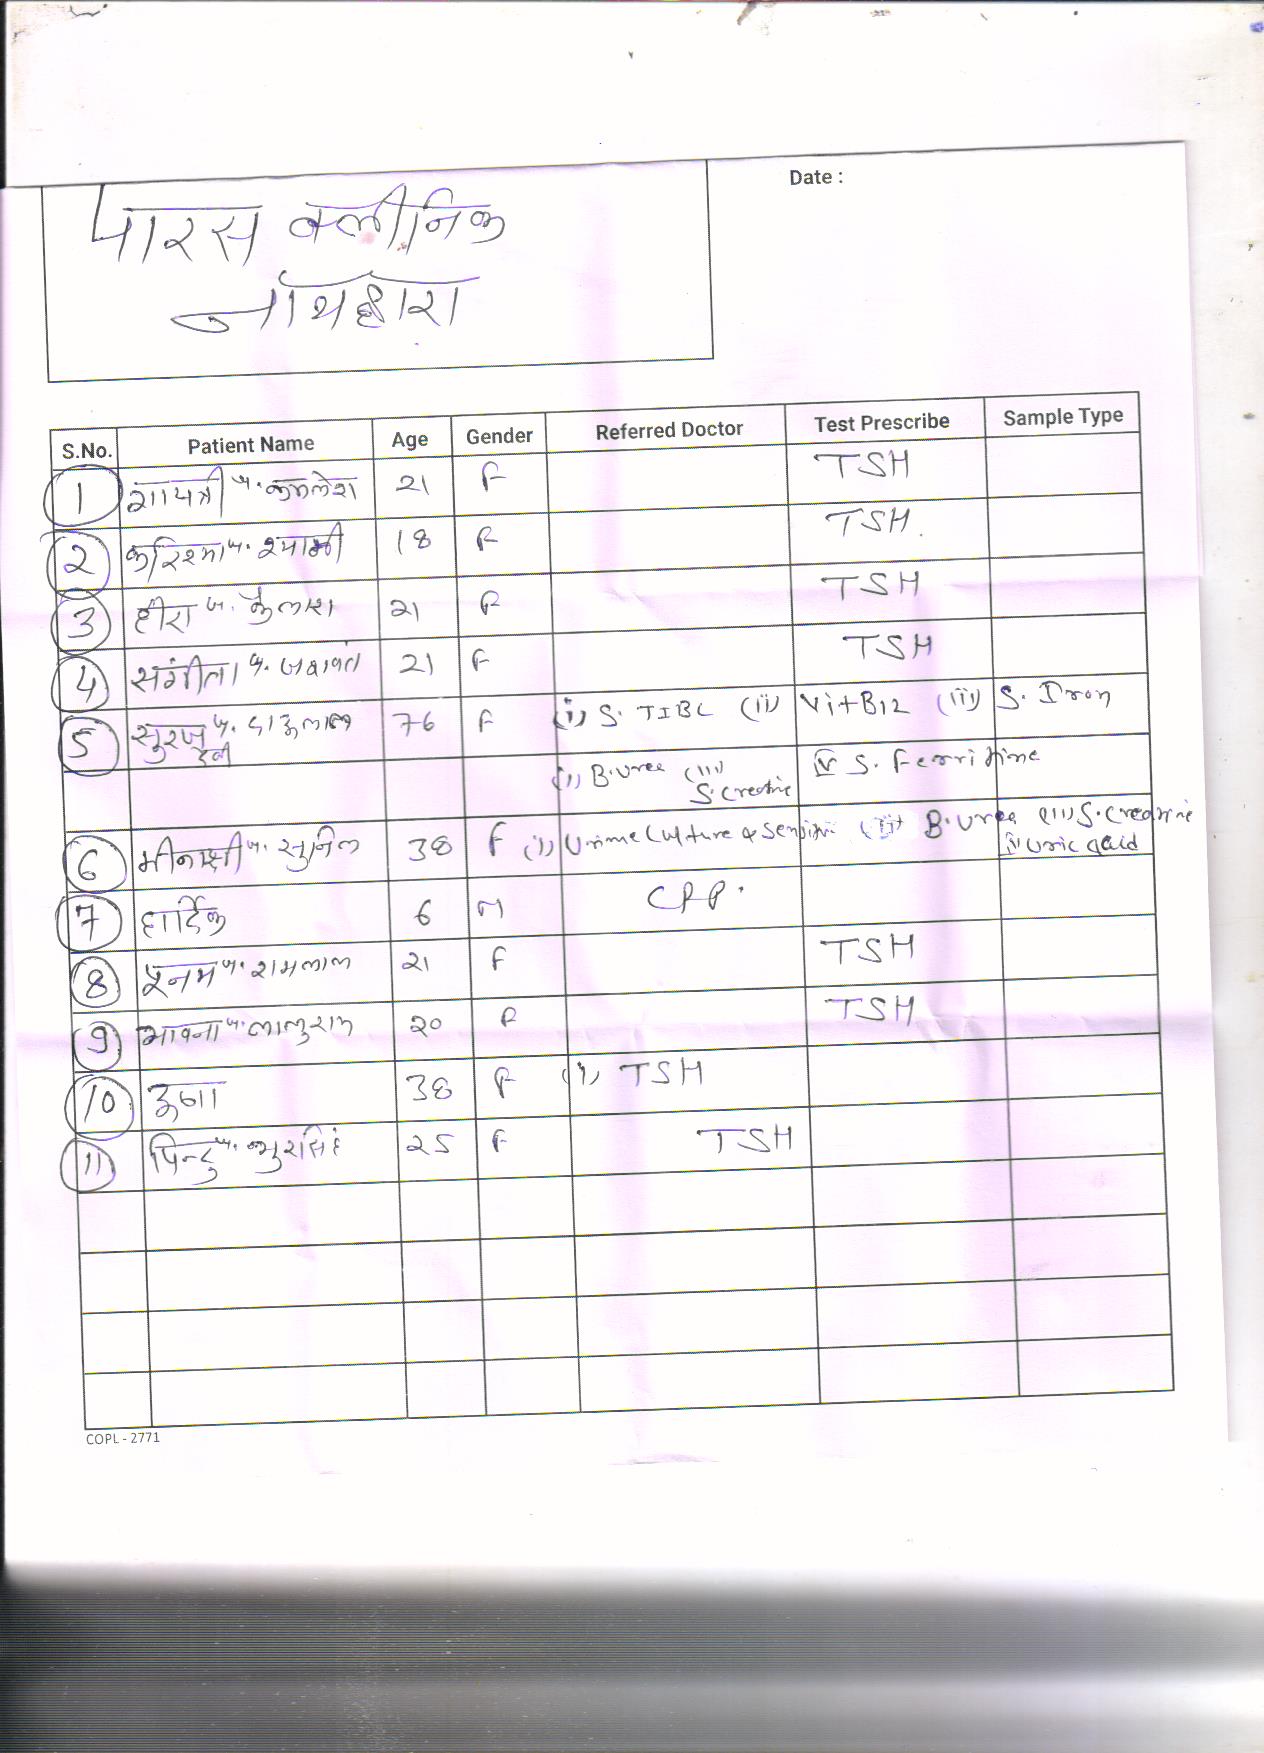 Date :
पारस क्लीनिक
नाथद्वारा
S.No. Patient Name Age Gender Referred Doctor Test Prescribe Sample Type
1 गायत्री प. कमलेश 21 F TSH
2 करिश्मा प. 18 F TSH.
3 हीरा प. कैलाश 21 F TSH
4 संगीता प. 21 F TSH
5 सुरज प. 76 F (i) S. TIBC (ii) Vit B12 (iii) S. Iron
देवी (i) B.urea (iii) S.Creatine IV S. Ferritine
6 मीनाक्षी प. सुनिल 38 F (i) Urine Culture & (ii) B.urea (iii) S.Creatine
IV uric acid
7 हार्दिक 6 M
8 प. रामलाल 21 F TSH
9 भावना प. लालुराम 20 F TSH
10 38 F (i) TSH
11 पिन्टु प. 25 F TSH
COPL - 2771